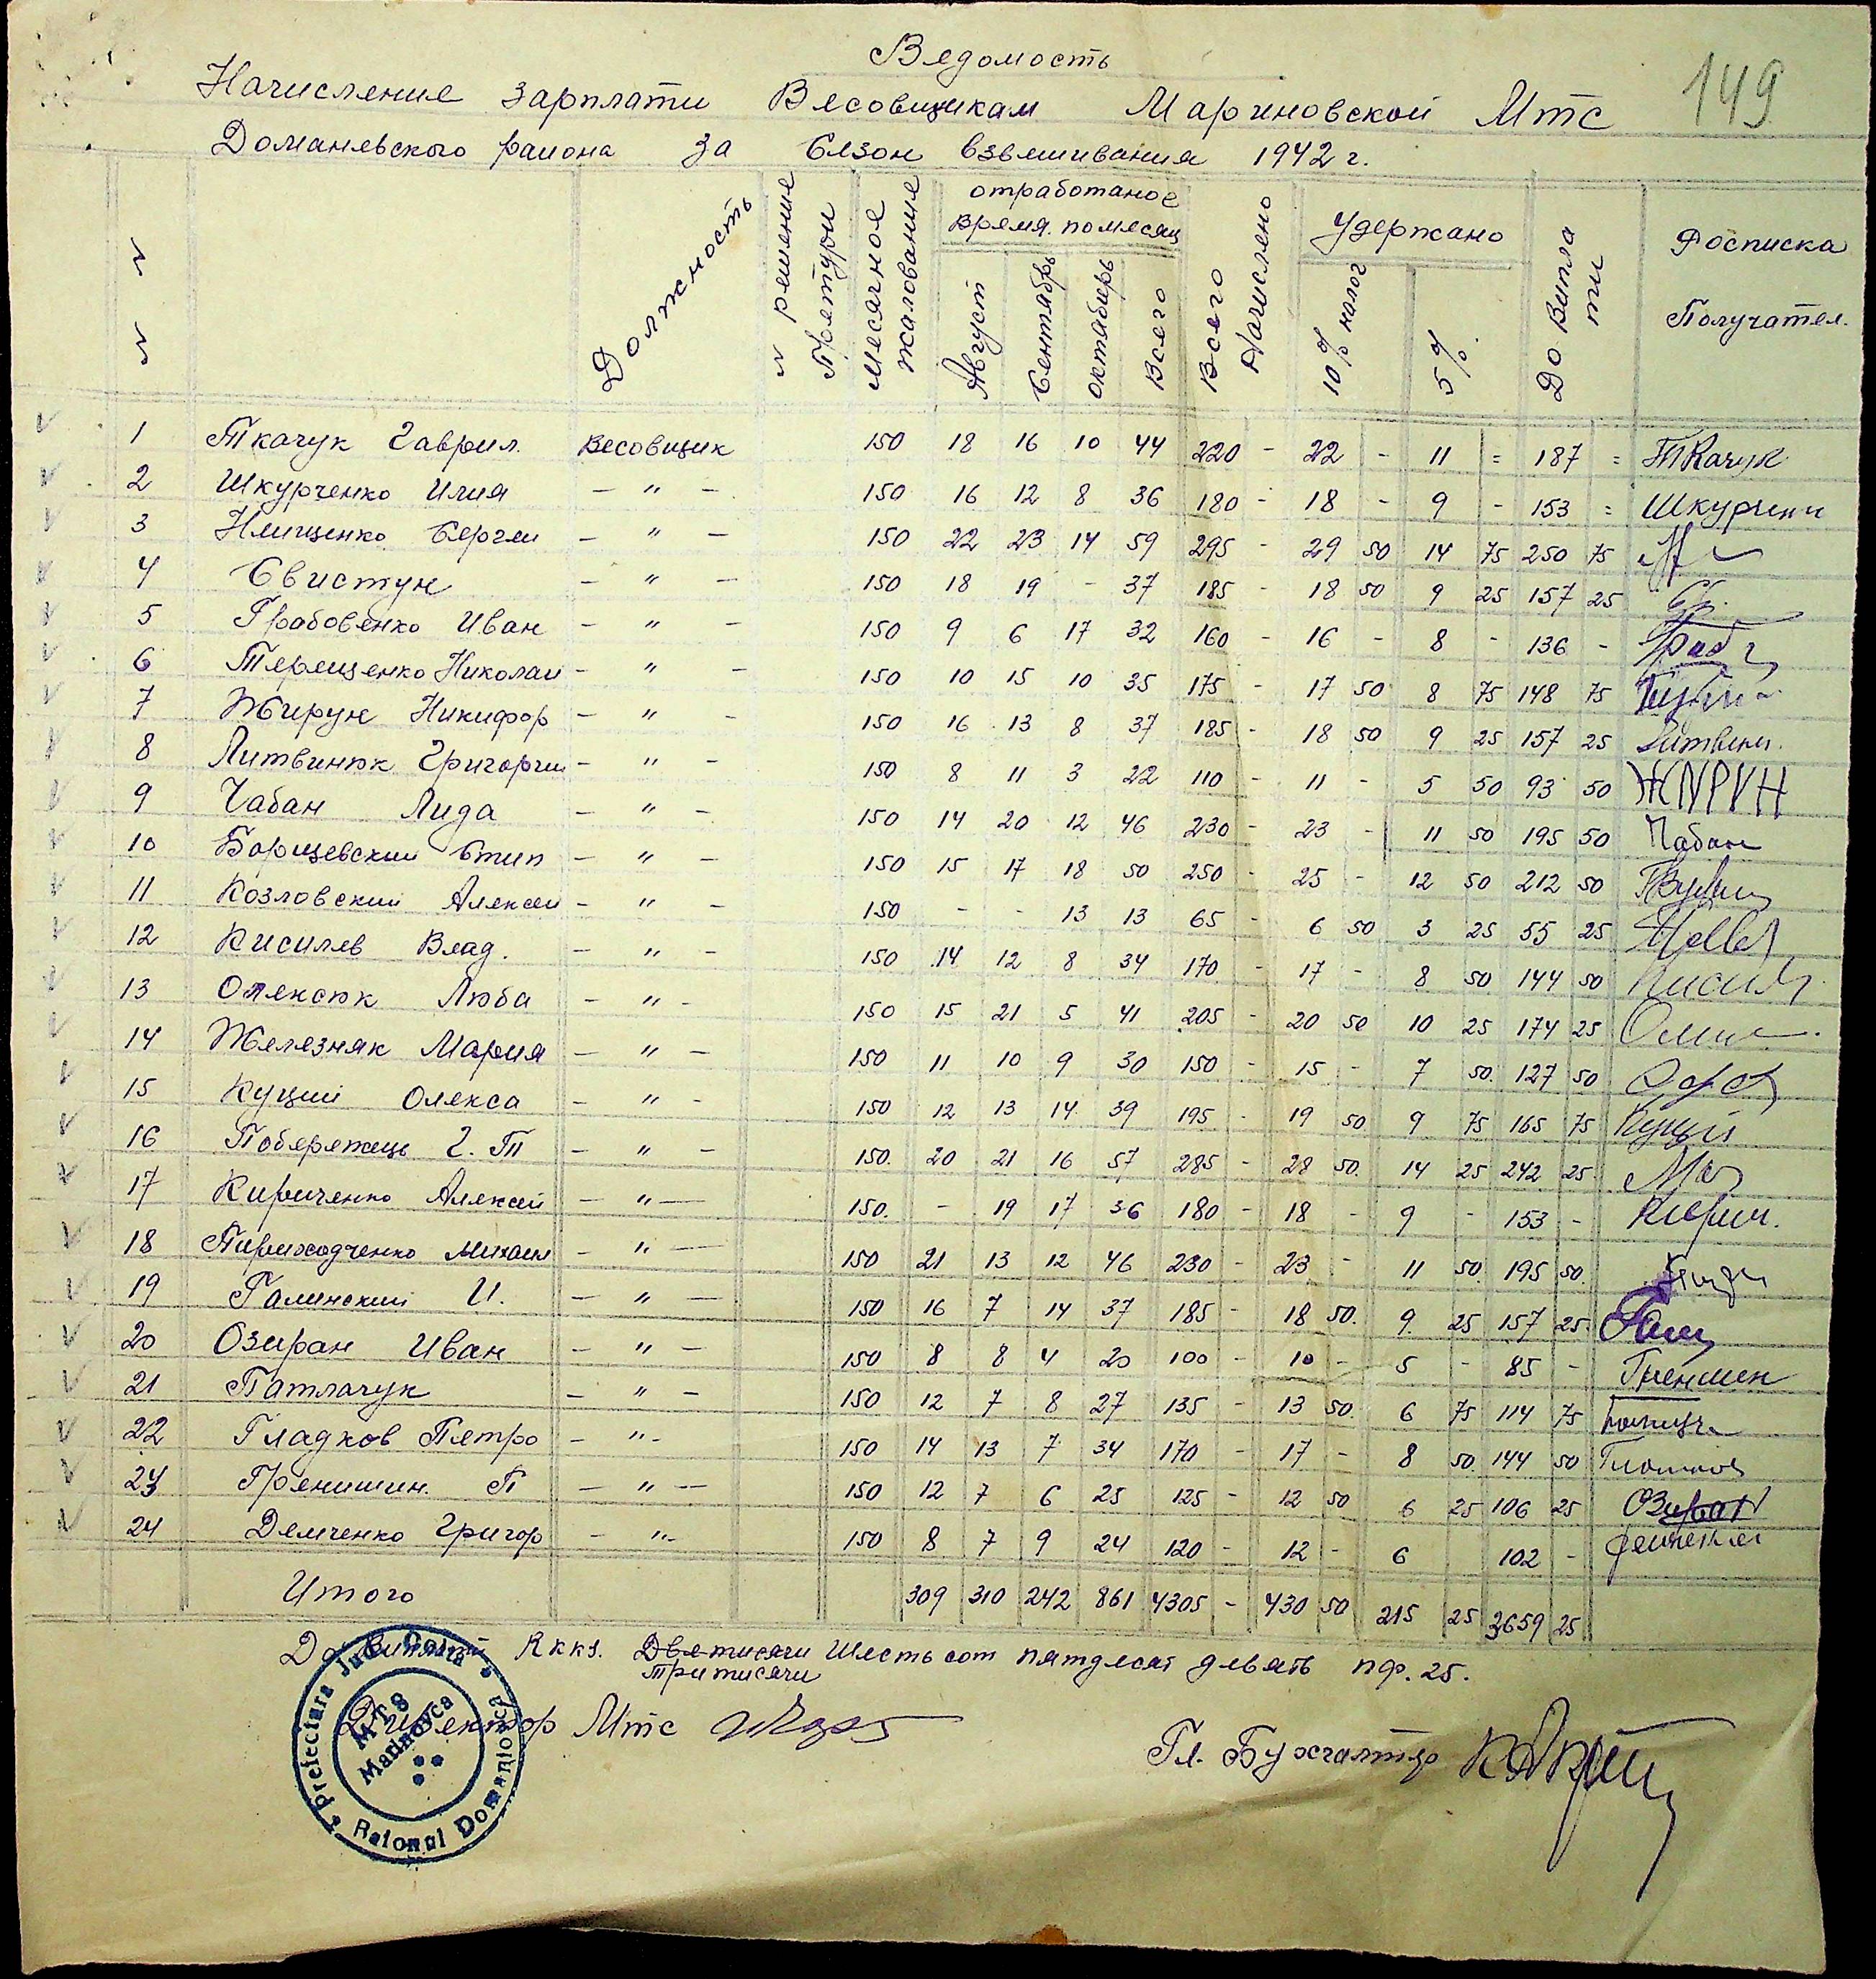 149
Ведомость
Начисление зарплати Весовщикам Мариновской Мтс
Доманевского района за Сезон взвешивания 1942 г.
№ № Должность № решение Претури Месячное жалование отработаное время по месяц Август Сентябрь октабирь Всего Всего Начислено Удержано 10% налог 5% До Випла ти Росписка Получател.
1 Ткачук Гаврил. Весовщик 150 18 16 10 44 220 - 22 - 11 = 187 = Ткачук
2 Шкурченко Илия - " - 150 16 12 8 36 180 - 18 - 9 - 153 =
3 Нмищенко Сергеи - " - 150 22 23 14 59 295 - 29 50 14 75 250 75
4 Свистун - " - 150 18 19 - 37 185 - 18 50 9 25 157 25
5 Грабовенко Иван - " - 150 9 6 17 32 160 - 16 - 8 - 136 -
6 Терещенко Николаи - " - 150 10 15 10 35 175 - 17 50 8 75 148 75
7 Жирун Никифор - " - 150 16 13 8 37 185 - 18 50 9 25 157 25
8 Литвинюк Григории - " - 150 8 11 3 22 110 - 11 - 5 50 93 50 ЖИРУН
9 Чабан Лида - " - 150 14 20 12 46 230 - 23 - 11 50 195 50 Чабан
10 Борщевскии Стип - " - 150 15 17 18 50 250 - 25 - 12 50 212 50
11 Козловскии Алексеи - " - 150 - - 13 13 65 - 6 50 3 25 55 25
12 Кисилев Влад. - " - 150 14 12 8 34 170 - 17 - 8 50 144 50
13 Олексюк Люба - " - 150 15 21 5 41 205 - 20 50 10 25 174 25
14 Железняк Мария - " - 150 11 10 9 30 150 - 15 - 7 50 127 50
15 Куций Олекса - " - 150 12 13 14 39 195 - 19 50 9 75 165 75 Куций
16 Побережець Г. П - " - 150. 20 21 16 57 285 - 28 50. 14 25 242 25.
17 Кириченко Алексей - " - 150. - 19 17 36 180 - 18 - 9 - 153 - Кирич.
18 Михаил - " - 150 21 13 12 46 230 - 23 - 11 50. 195 50.
19 Галинский И. - " - 150 16 7 14 37 185 - 18 50. 9. 25 157 25.
20 Озиран Иван - " - 150 8 8 4 20 100 - 10 - 5 - 85 -
21 Патлачук - " - 150 12 7 8 27 135 - 13 50. 6 75 114 75
22 Гладков Петро - " - 150 14 13 7 34 170 - 17 - 8 50. 144 50
23 Гренишин. П - " - 150 12 7 6 25 125 - 12 50 6 25 106 25 Озиран
24 Демченко Григор - " - 150 8 7 9 24 120 - 12 - 6 102 -
Итого 309 310 242 861 4305 - 430 50 215 25 3659 25
До Виплати Rkks. Две тисячи Шестьсот пятдесят девять пф. 25.
Три тисячи
Директор Мтс
Гл. Бухгалтер
Prefectura Jud. Golta
Raionul Domaniovca
MTS
Marinovca